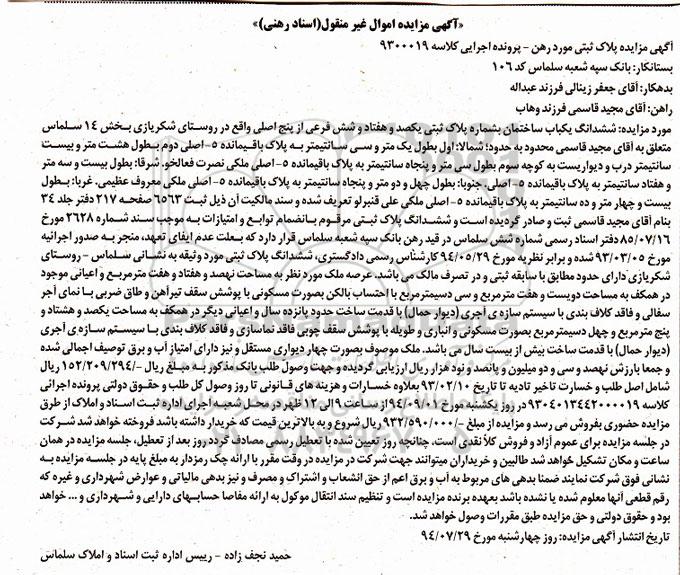 «آگهی مزایده اموال غیر منقول(اسناد رهنی)»
آگهی مزایده پلاک ثبتی مورد رهن - پرونده اجرایی کلاسه ۹۳۰۰۰۱۹
بستانکار: بانک سپه شعبه سلماس کد ۱۰۶
بدهکار: آقای جعفر زینالی فرزند عبداله
راهن: آقای مجید قاسمی فرزند وهاب
مورد مزایده: ششدانگ یکباب ساختمان بشماره پلاک ثبتی یکصد و هفتاد و شش فرعی از پنج اصلی واقع در روستای شکریازی بخش ۱۴ سلماس
متعلق به آقای مجید قاسمی محدود به حدود؛ شمالا: اول بطول یک متر و سی سانتیمتر به پلاک باقیمانده ۵-اصلی دوم بطول هشت متر و بیست
سانتیمتر درب و دیواریست به کوچه سوم بطول سی متر و پنجاه سانتیمتر به پلاک باقیمانده ۵-اصلی ملکی نصرت فعالخو. شرقا: بطول بیست و سه متر
و هفتاد سانتیمتر به پلاک باقیمانده ۵-اصلی. جنوبا: بطول چهل و دو متر و پنجاه سانتیمتر به پلاک باقیمانده ۵-اصلی ملکی معروف عظیمی. غربا: بطول
بیست و چهار متر و ده سانتیمتر به پلاک باقیمانده ۵-اصلی ملکی علی قنبرلو تعریف شده و سند مالکیت آن ذیل ثبت ۶۵۶۳ صفحه ۲۱۷ دفتر جلد ۳۴
بنام آقای مجید قاسمی ثبت و صادر گردیده است و ششدرانگ پلاک ثبتی مرقوم بانضمام توابع و امتیازات به موجب سند شماره ۲۶۲۸ مورخ
۸۵/۰۷/۱۶ دفتر اسناد رسمی شماره شش سلماس در قید رهن بانک سپه شعبه سلماس قرار دارد که بعلت عدم ایفای تعهد، منجر به صدور اجرائیه
مورخ ۹۳/۰۳/۰۵ شده و برابر نظریه مورخ ۹۴/۰۵/۲۹ کارشناس رسمی دادگستری، ششدانگ پلاک ثبتی مورد وثیقه به نشانی سلماس - روستای
شکریازی دارای حدود مطابق با سابقه ثبتی و در تصرف مالک می باشد. عرصه ملک مورد نظر به مساحت نهصد و هفتاد و هفت مترمربع و اعیانی موجود
در همکف به مساحت دویست و هفت مترمربع و سی دسیمترمربع با احتساب بالکن بصورت مسکونی با پوشش سقف تیرآهن و طاق ضربی با نمای آجر
سفالی و فاقد کلاف بندی با سیستم سازه ی آجری (دیوار حمال) با قدمت ساخت حدود پانزده سال و اعیانی دیگر در همکف به مساحت یکصد و هشتاد و
پنج مترمربع و چهل دسیمترمربع بصورت مسکونی و انباری و طویله با پوشش سقف چوبی فاقد نماسازی و فاقد کلاف بندی با سیستم سازه ی آجری
(دیوار حمال) با قدمت ساخت بیش از بیست سال می باشد. ملک موصوف بصورت چهار دیواری مستقل و نیز دارای امتیاز آب و برق توصیف اجمالی شده
و جمعا بارزش نهصد و سی و دو میلیون و پانصد و نود هزار ریال ارزیابی گردیده و جهت وصول طلب بانک مذکور به مبلغ ریال -/۱۵۲/۲۰۹/۲۹۴ ریال
شامل اصل طلب و خسارت تاخیر تادیه تا تاریخ ۹۳/۰۲/۱۰ بعلاوه خسارات و هزینه های قانونی تا روز وصول کل طلب و حقوق دولتی پرونده اجرائی
کلاسه ۹۳۰۴۰۱۳۴۴۲۰۰۰۰۱۹ در روز یکشنبه مورخ ۹۴/۰۹/۰۱ از ساعت ۹ الی ۱۲ ظهر در محل شعبه اجرای اداره ثبت اسناد و املاک از طرق
مزایده حضوری بفروش می رسد و مزایده از مبلغ -/۹۳۲/۵۹۰/۰۰۰ ریال شروع و به بالاترین قیمت که خریدار داشته باشد فروخته خواهد شد شرکت
در جلسه مزایده برای عموم آزاد و فروش کلاً نقدی است. چنانچه روز تعیین شده با تعطیل رسمی مصادف گردد روز بعد از تعطیل، جلسه مزایده در همان
ساعت و مکان تشکیل خواهد شد طالبین و خریداران میتوانند جهت شرکت در مزایده در وقت مقرر با ارائه چک رمزدار به مبلغ پایه در جلسه مزایده به
نشانی فوق شرکت نمایند ضمنا بدهی های مربوط به آب و برق اعم از حق انشعاب و اشتراک و مصرف و نیز بدهی مالیاتی و عوارض شهرداری و غیره که
رقم قطعی آنها معلوم شده یا نشده باشد بعهده برنده مزایده است و تنظیم سند انتقال موکول به ارائه مفاصا حسابهای دارایی و شهرداری و ... خواهد
بود و حقوق دولتی و حق مزایده طبق مقررات وصول خواهد شد.
تاریخ انتشار آگهی مزایده: روز چهارشنبه مورخ ۹۴/۰۷/۲۹
حمید نجف زاده - رییس اداره ثبت اسناد و املاک سلماس